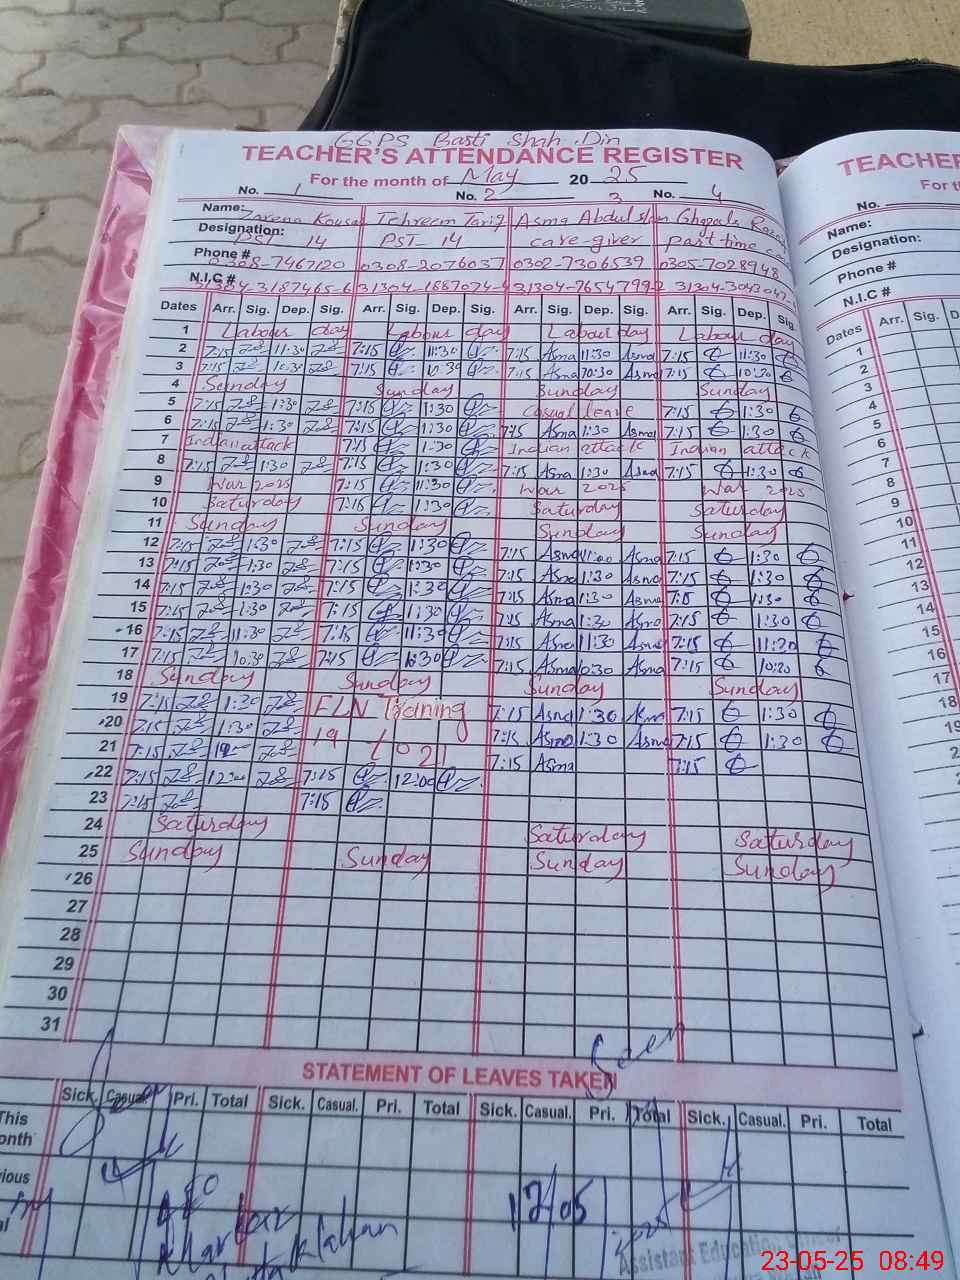 GGPS Basti Shah Din
TEACHER'S ATTENDANCE REGISTER
For the month of May 2025
No. 1 No. 2 3 No. 4
Name: Zareena Kousar Tehreem Tariq Asma Abdul Ghazala
Designation: PST 14 PST- 14 care-giver part time
Phone # 0308-7467120 0308-2076037 0302-7306539 0305-7028948
N.I.C #
Dates Arr. Sig. Dep. Sig. Arr. Sig. Dep. Sig. Arr. Sig. Dep. Sig. Arr. Sig. Dep. Sig.
1 Labour day Labour day Labour day Labour day
2 7:15 11:30 7:15 11:30 7:15 Asma 11:30 Asma 7:15 11:30
3 7:15 10:30 7:15 10:30 7:15 Asma 10:30 Asma 7:15 10:30
4 Sunday Sunday Sunday Sunday
5 7:15 1:30 7:15 1:30 Casual leave 7:15 1:30
6 7:15 1:30 7:15 1:30 7:15 Asma 1:30 Asma 7:15 1:30
7 Indian attack 7:15 1:30 Indian attack Indian attack
8 7:15 1:30 7:15 1:30 7:15 Asma 1:30 Asma 7:15 1:30
9 War 2025 7:15 11:30 War 2025 War 2025
10 Saturday 7:15 1:30 Saturday Saturday
11 Sunday Sunday Sunday Sunday
12 7:15 1:30 7:15 1:30 7:15 Asma Asma 7:15 1:30
13 7:15 1:30 7:15 1:30 7:15 Asma 1:30 Asma 7:15 1:30
14 7:15 1:30 7:15 1:30 7:15 Asma 1:30 Asma 7:15 1:30
15 7:15 1:30 7:15 1:30 7:15 Asma 1:30 Asma 7:15 1:30
16 7:15 11:30 7:15 11:30 7:15 Asma 11:30 Asma 7:15 11:30
17 7:15 10:30 7:15 10:30 7:15 Asma 10:30 Asma 7:15 10:20
18 Sunday Sunday Sunday Sunday
19 7:15 1:30 FLN Training 7:15 Asma 1:30 Asma 7:15 1:30
20 7:15 1:30 19 to 21 7:15 Asma 1:30 Asma 7:15 1:30
21 7:15 7:15 Asma 7:15
22 7:15 12:00 7:15 12:00
23 7:15 7:15
24 Saturday Saturday Saturday
25 Sunday Sunday Sunday Sunday
26
27
28
29
30
31
Seen
STATEMENT OF LEAVES TAKEN
Sick. Casual. Pri. Total Sick. Casual. Pri. Total Sick. Casual. Pri. Total Sick. Casual. Pri. Total
This
onth
ious
al
AEO
12/05
2025
Assistant Education
TEACHER
For th
No.
Name:
Designation:
Phone #
N.I.C #
Dates Arr. Sig.
1
2
3
4
5
6
7
8
9
10
11
12
13
14
15
16
17
18
19
23-05-25 08:49